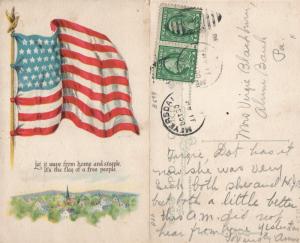 Let it wave from home and steeple,
it's the flag of a free people.
MEYERSDA
OCT 30
11
PA
Mrs Virgie Blackburn,
Alum Bank
Pa
Virgie, Dot has it
now she was very
sick both she and
but both a little better
this A.M. did not
hear from Yesterday